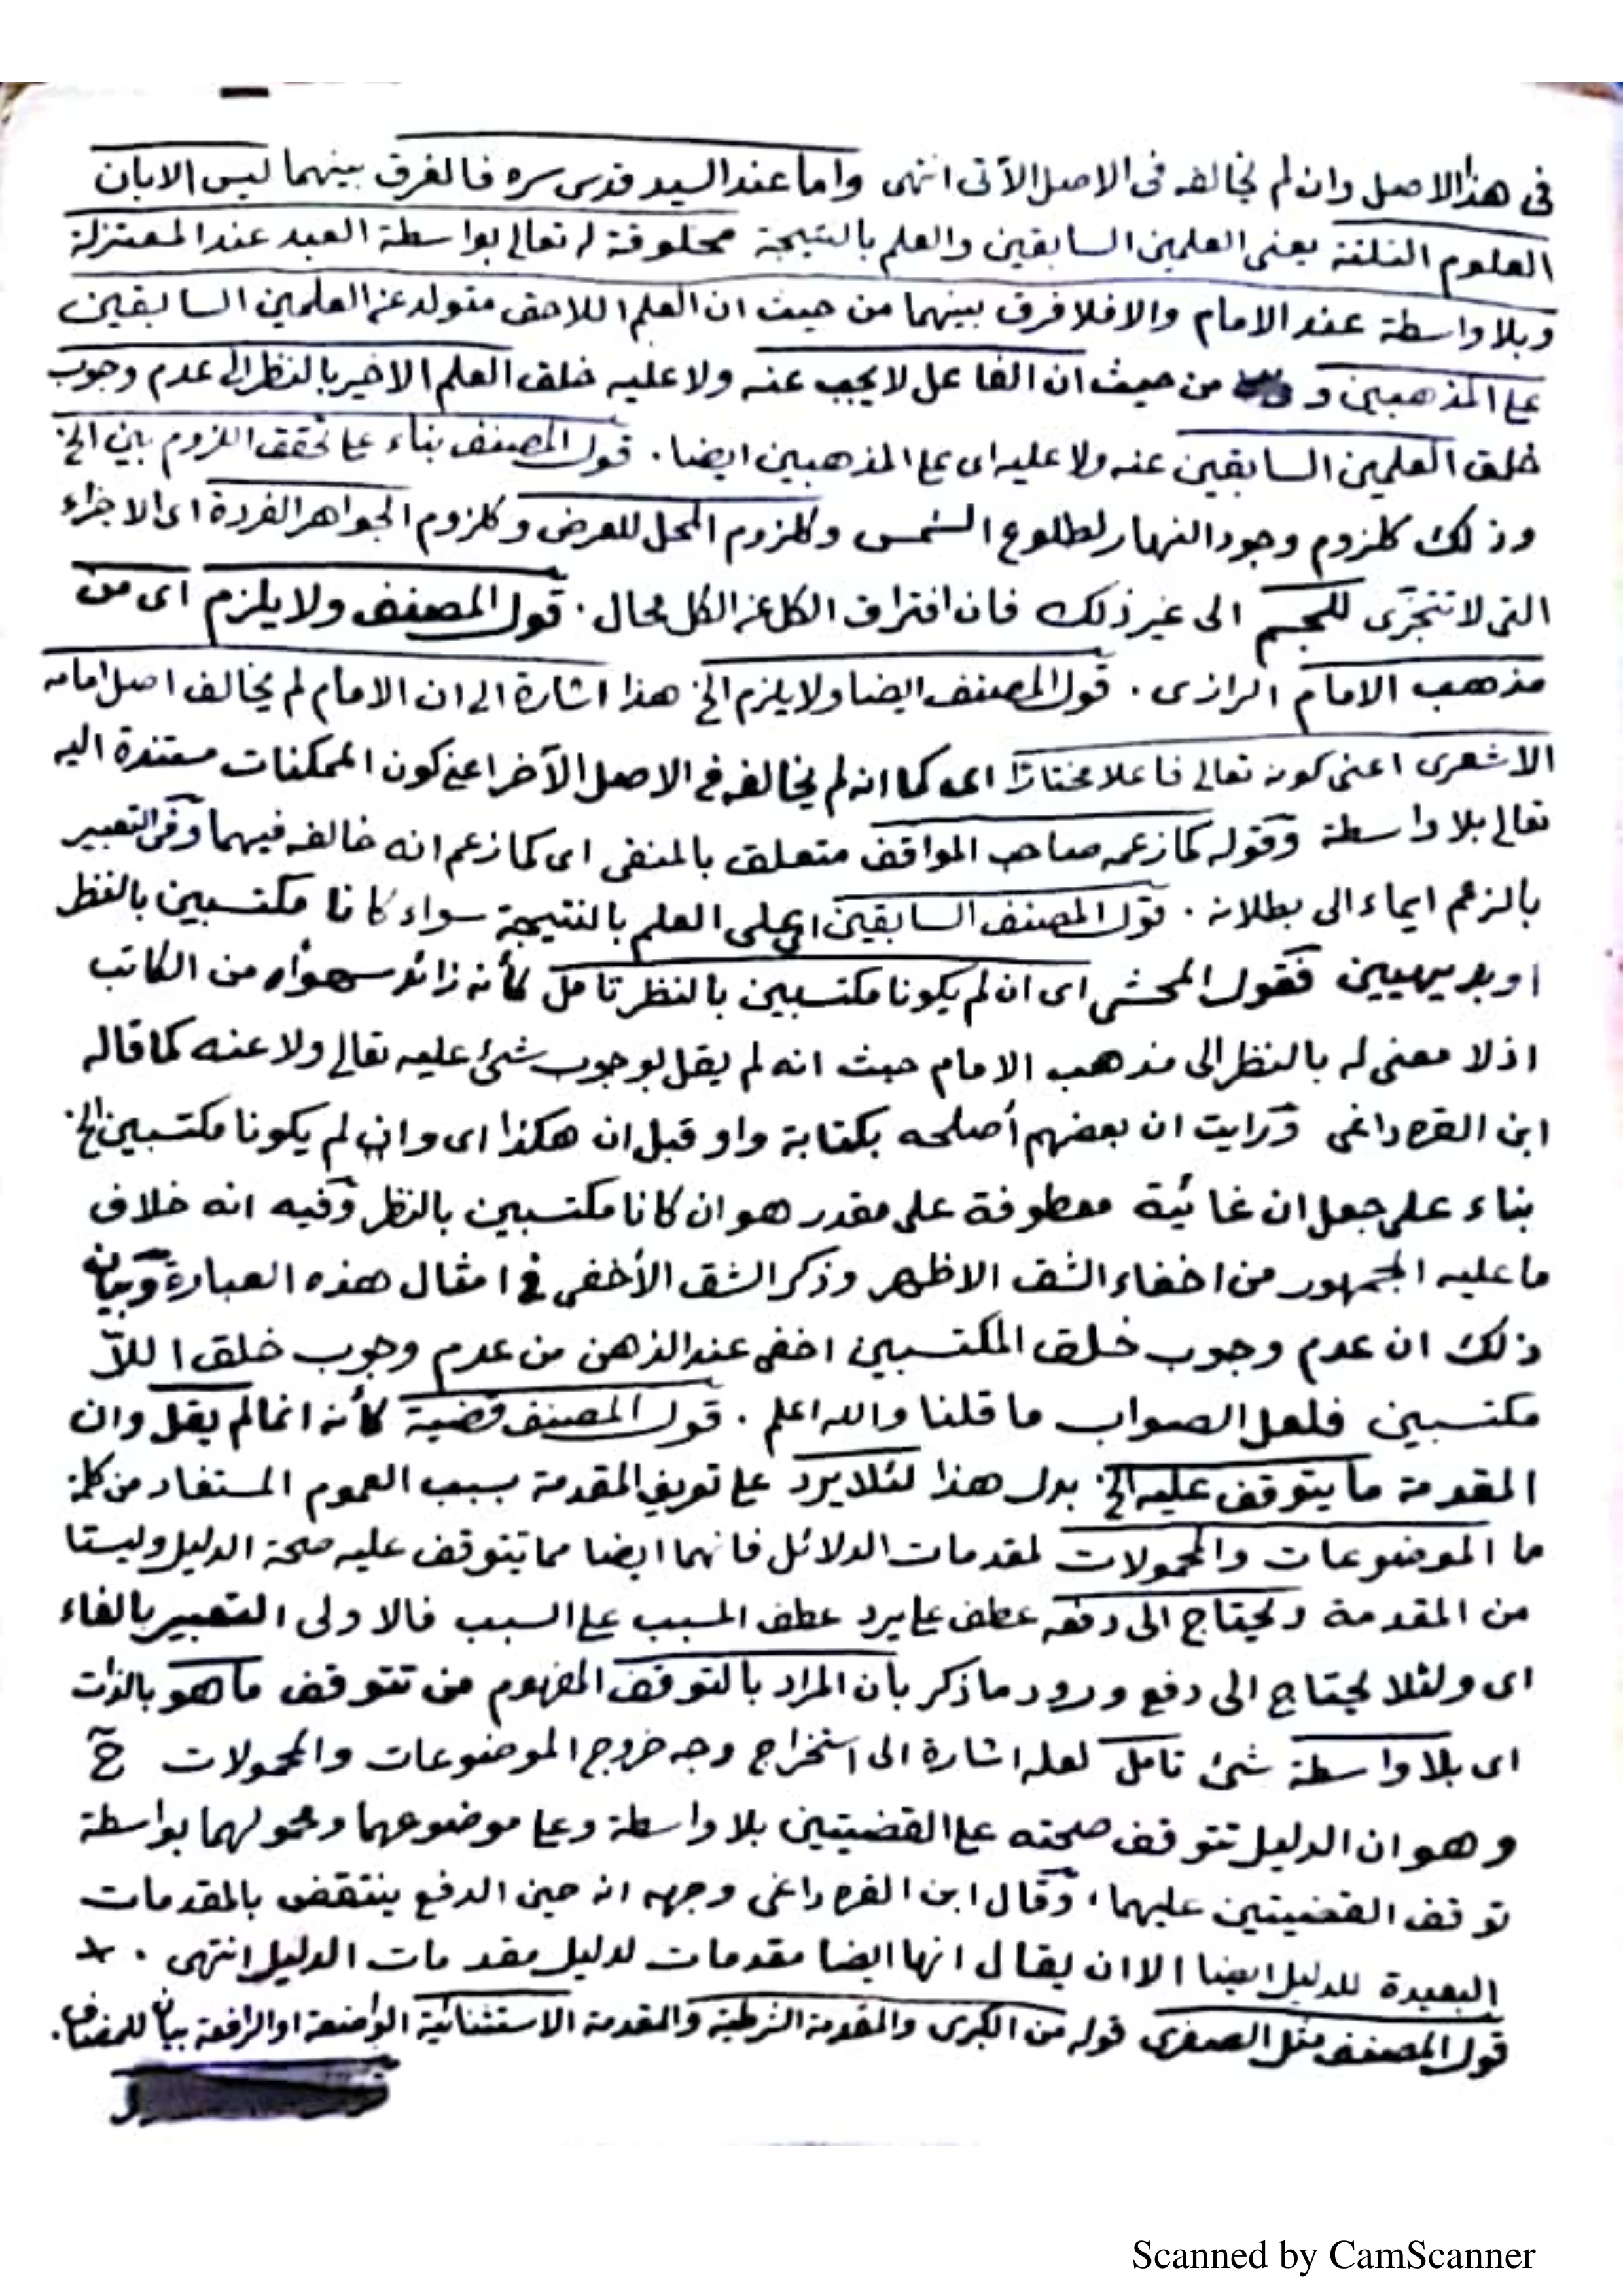 فى هذا الاصل وان لم يخالفه فى الاصل الآتى انتهى واما عند السيد قدس سره فالفرق بينهما ليس الا بان
العلوم الثلثة يعنى العلمين السابقين والعلم بالنتيجة مخلوقة له تعالى بواسطة العبد عند المعتزلة
وبلا واسطة عند الامام والا فلا فرق بينهما من حيث ان العلم اللاحق متولد عن العلمين السابقين
على المذهبين و من حيث ان الفاعل لا يجب عنه ولا عليه خلق العلم الاخير بالنظر الى عدم وجوب
خلق العلمين السابقين عنه ولا عليه اى على المذهبين ايضا. قول المصنف بناء على تحقق اللزوم بين الخ
وذلك كلزوم وجود النهار لطلوع الشمس وكلزوم المحل للعرض وكلزوم الجواهر الفردة اى الاجزاء
التى لا تتجزى للجسم الى غير ذلك فان افتراق الكل عن الكل محال. قول المصنف ولا يلزم اى من
مذهب الامام الرازى. قول المصنف ايضا ولا يلزم الخ هذا اشارة الى ان الامام لم يخالف اصل امامه
الاشعرى اعنى كونه تعالى فاعلا مختارا اى كما انه لم يخالفه فى الاصل الآخر اعنى كون الممكنات مستندة اليه
تعالى بلا واسطة وقوله كما زعمه صاحب المواقف متعلق بالمنفى اى كما زعم انه خالفه فيهما وفى التعبير
بالزعم ايماء الى بطلانه. قول المصنف السابقين اى على العلم بالنتيجة سواء كانا مكتسبين بالنظر
او بديهيين فقول المحشى اى ان لم يكونا مكتسبين بالنظر تامل كأنه زائد سهوا من الكاتب
اذ لا معنى له بالنظر الى مذهب الامام حيث انه لم يقل بوجوب شئ عليه تعالى ولا عنه كما قاله
ابن القره داغى ورايت ان بعضهم أصلحه بكتابة واو قبل ان هكذا اى وان لم يكونا مكتسبين الخ
بناء على جعل ان غائية معطوفة على مقدر هو ان كانا مكتسبين بالنظر وفيه انه خلاف
ما عليه الجمهور من اخفاء الشق الاظهر وذكر الشق الأخفى فى امثال هذه العبارة وبيان
ذلك ان عدم وجوب خلق المكتسبين اخفى عند الذهن من عدم وجوب خلق اللا
مكتسبين فلعل الصواب ما قلنا والله اعلم. قول المصنف قضية كأنه انما لم يقل وان
المقدمة ما يتوقف عليه الخ بدل هذا لئلا يرد على تعريف المقدمة بسبب العموم المستفاد من كلمة
ما الموضوعات والمحمولات لمقدمات الدلائل فانهما ايضا مما يتوقف عليه صحة الدليل وليستا
من المقدمة ويحتاج الى دفعه عطف على يرد عطف المسبب على السبب فالاولى التعبير بالفاء
اى ولئلا يحتاج الى دفع ورود ما ذكر بان المراد بالتوقف المفهوم من تتوقف ما هو بالذات
اى بلا واسطة شئ تامل لعله اشارة الى استخراج وجه خروج الموضوعات والمحمولات ح
وهو ان الدليل تتوقف صحته على القضيتين بلا واسطة وعلى موضوعهما ومحمولهما بواسطة
توقف القضيتين عليهما، وقال ابن القره داغى وجهه انه حين الدفع ينتقض بالمقدمات
البعيدة للدليل ايضا الا ان يقال انها ايضا مقدمات لدليل مقدمات الدليل انتهى.
قول المصنف مثل الصغرى قوله من الكبرى والمقدمة الشرطية والمقدمة الاستثنائية الواضعة او الرافعة بيان للمضاف.
Scanned by CamScanner